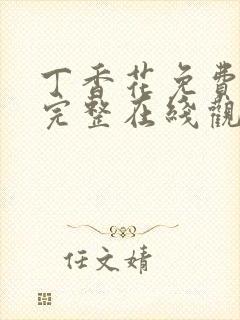 丁香花免費
完整在綫觀
任文婧